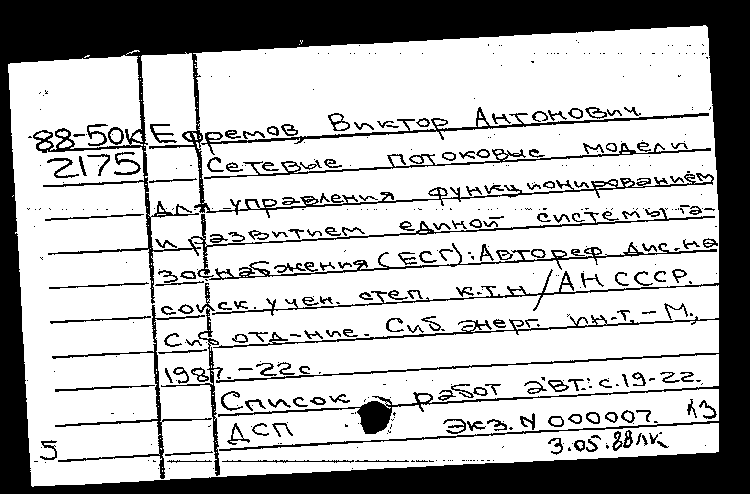 88-50к Ефремов, Виктор Антонович
2175 Сетевые потоковые модели
для управления функционированием
и развитием единой системы га-
зоснабжения (ЕСГ): Автореф дис. на
соиск. учен. степ. к.т.н / АН СССР.
Сиб отд-ние. Сиб. энерг. ин-т. - М.,
1987. - 22 с.
Список работ авт.: с. 19-22.
ДСП Экз. N 000007. 13
5 3.05.88лк